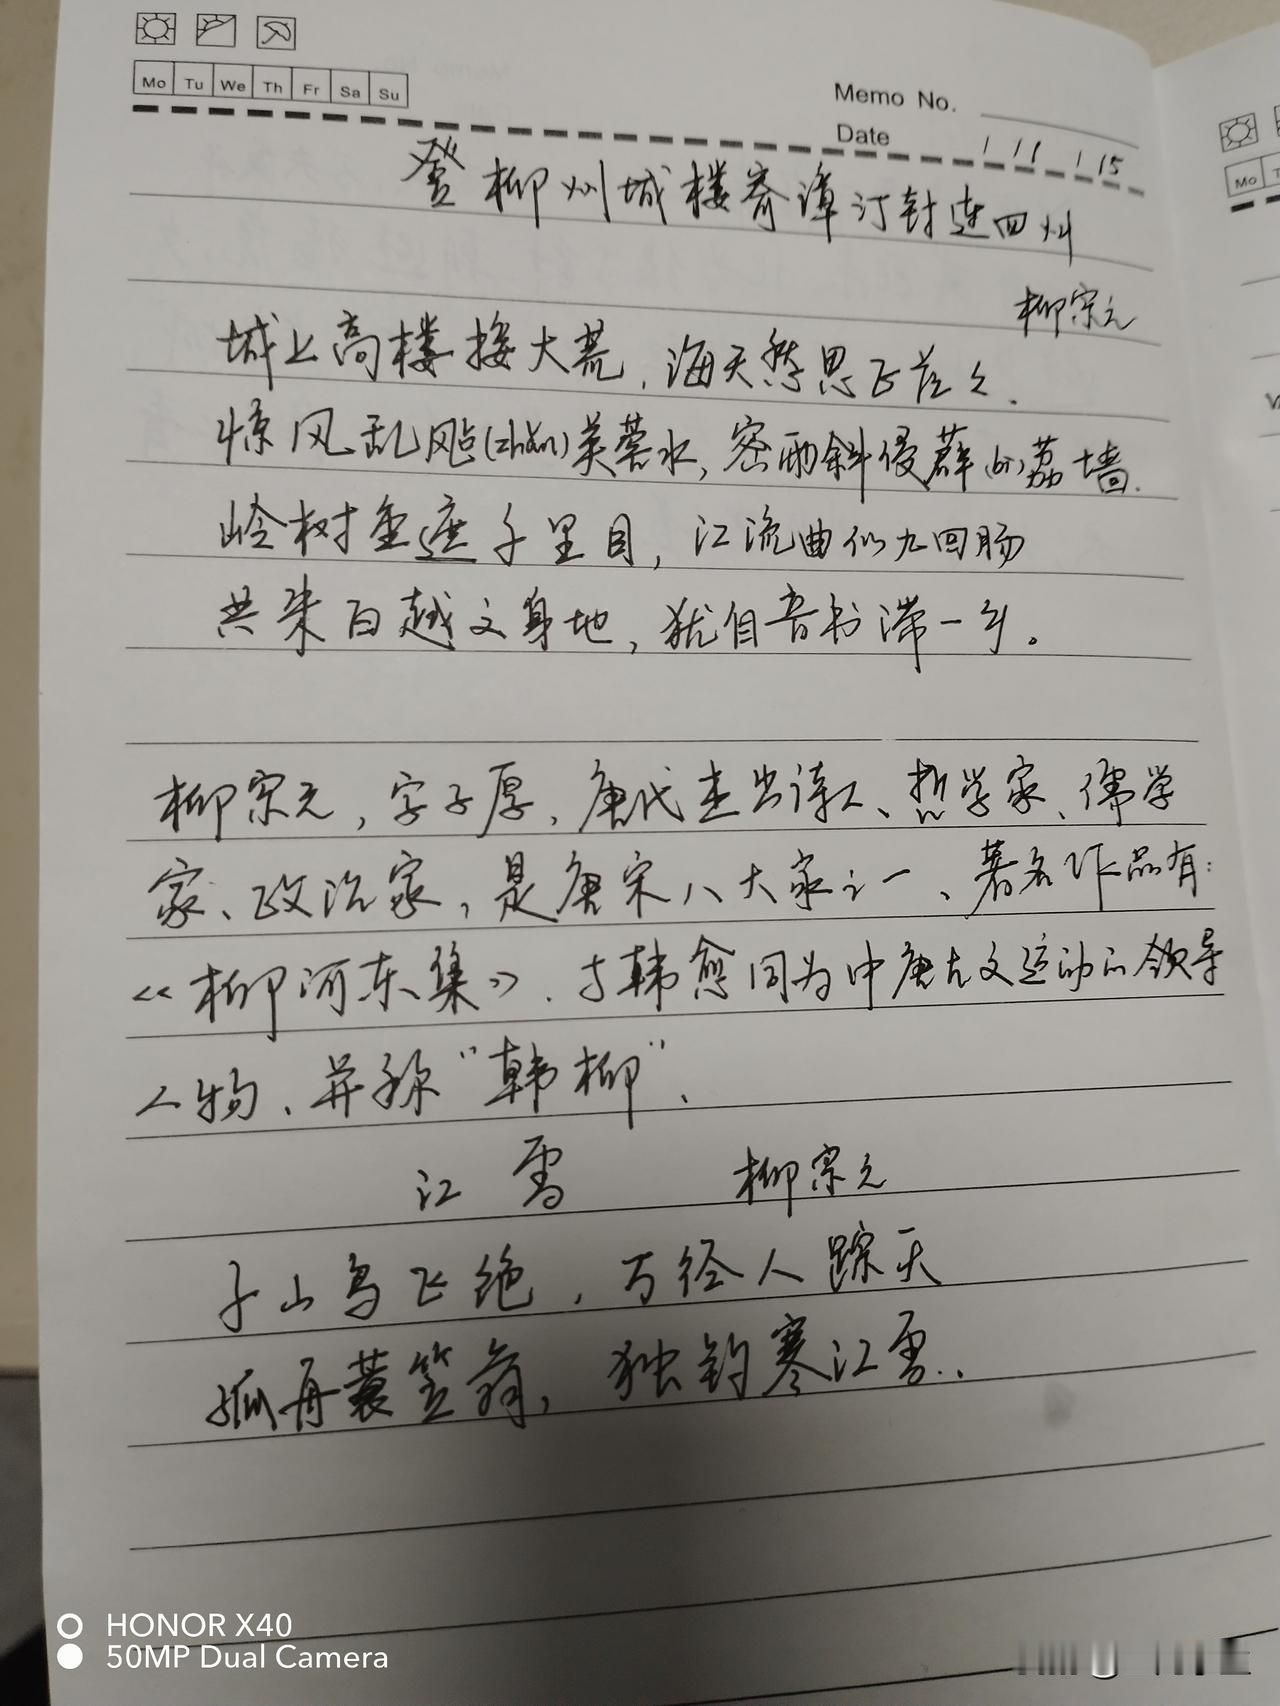 Mo Tu We Th Fr Sa Su
Memo No.
Date 1 11 1 15
登柳州城楼寄漳汀封连四州
柳宗元
城上高楼接大荒，海天愁思正茫々.
惊风乱飐(zhǎn)芙蓉水，密雨斜侵薜(bì)荔墙.
岭树重遮千里目，江流曲似九回肠
共来百越文身地，犹自音书滞一乡。
柳宗元，字子厚，唐代杰出诗人、哲学家、儒学
家、政治家，是唐宋八大家之一、著名作品有：
《柳河东集》、与韩愈同为中唐古文运动的领导
人物、并称“韩柳”.
江雪 柳宗元
千山鸟飞绝，万径人踪灭
孤舟蓑笠翁，独钓寒江雪..
Mo
HONOR X40
50MP Dual Camera